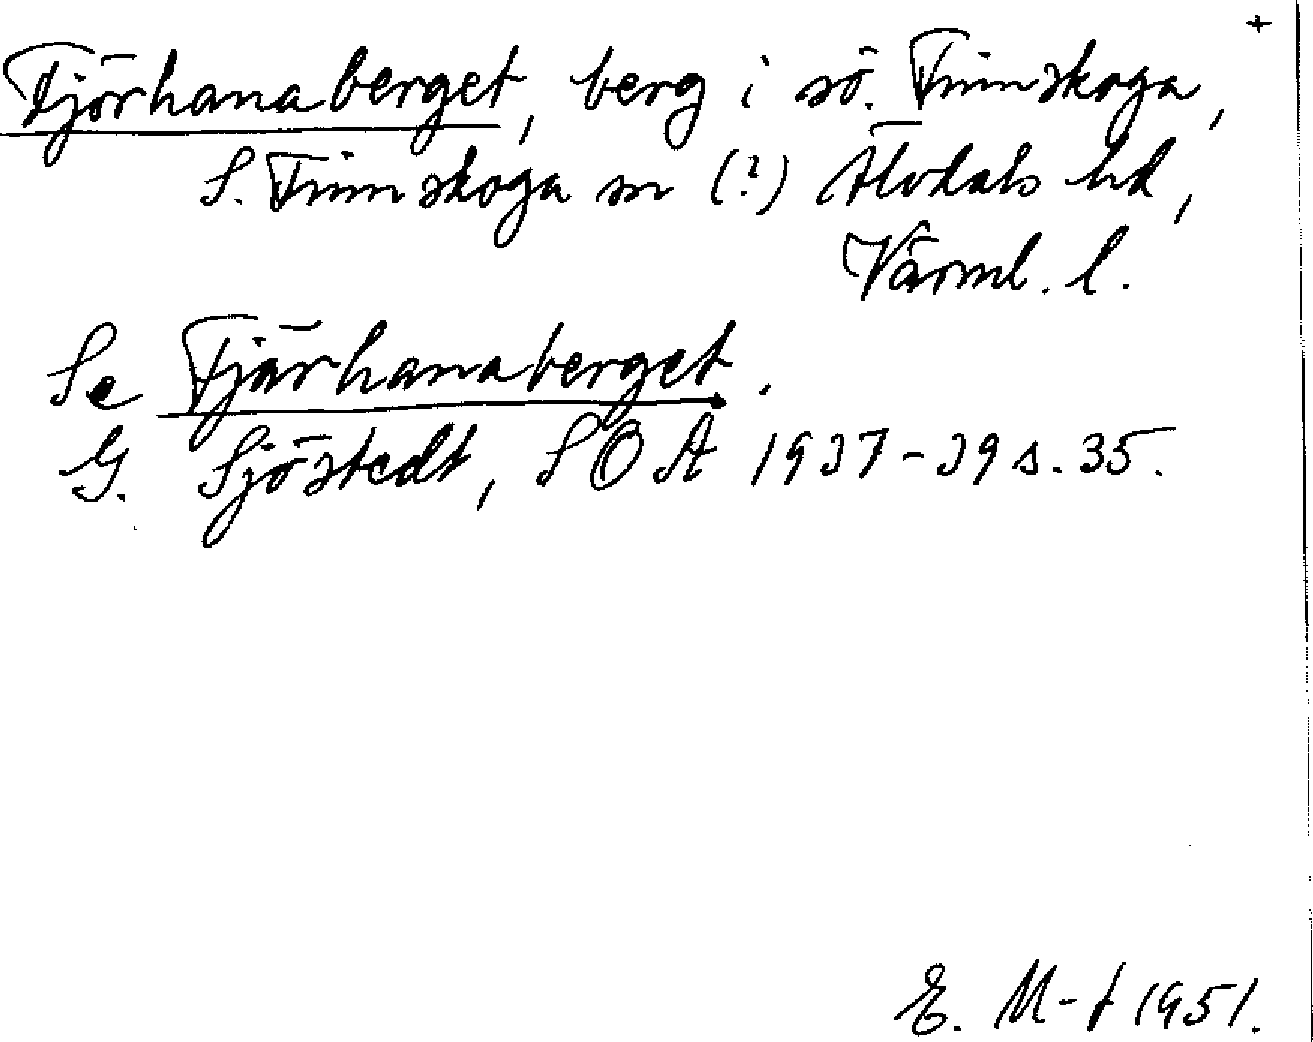 +
Tjörhanaberget, berg i sö. Finnskoga,
S. Finnskoga sn (?) Älvdals hd,
Värml. l.
Se Tjärhanaberget.
G. Sjöstedt, SOÅ 1937-39 s. 35.
E. M-t 1951.